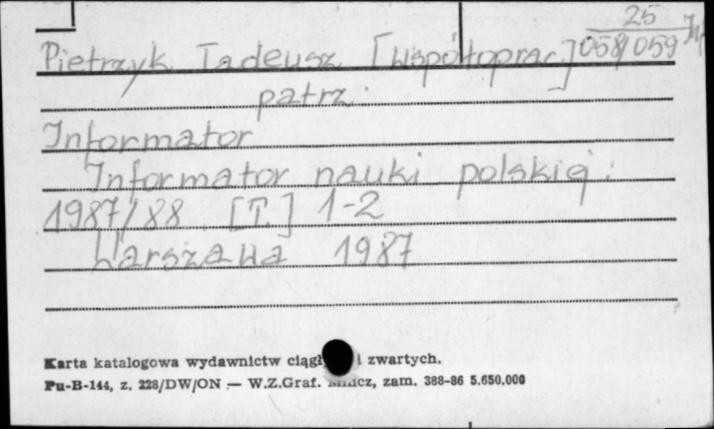 25
Pietrzyk Tadeusz [Współoprac.] 058/059
patrz:
Informator
Informator nauki polskiej.
1987/88. [T] 1-2
Warszawa 1987
Karta katalogowa wydawnictw i zwartych.
Pu-B-144, z. 228/DW/ON — W.Z.Graf. zam. 388-86 5.650.000